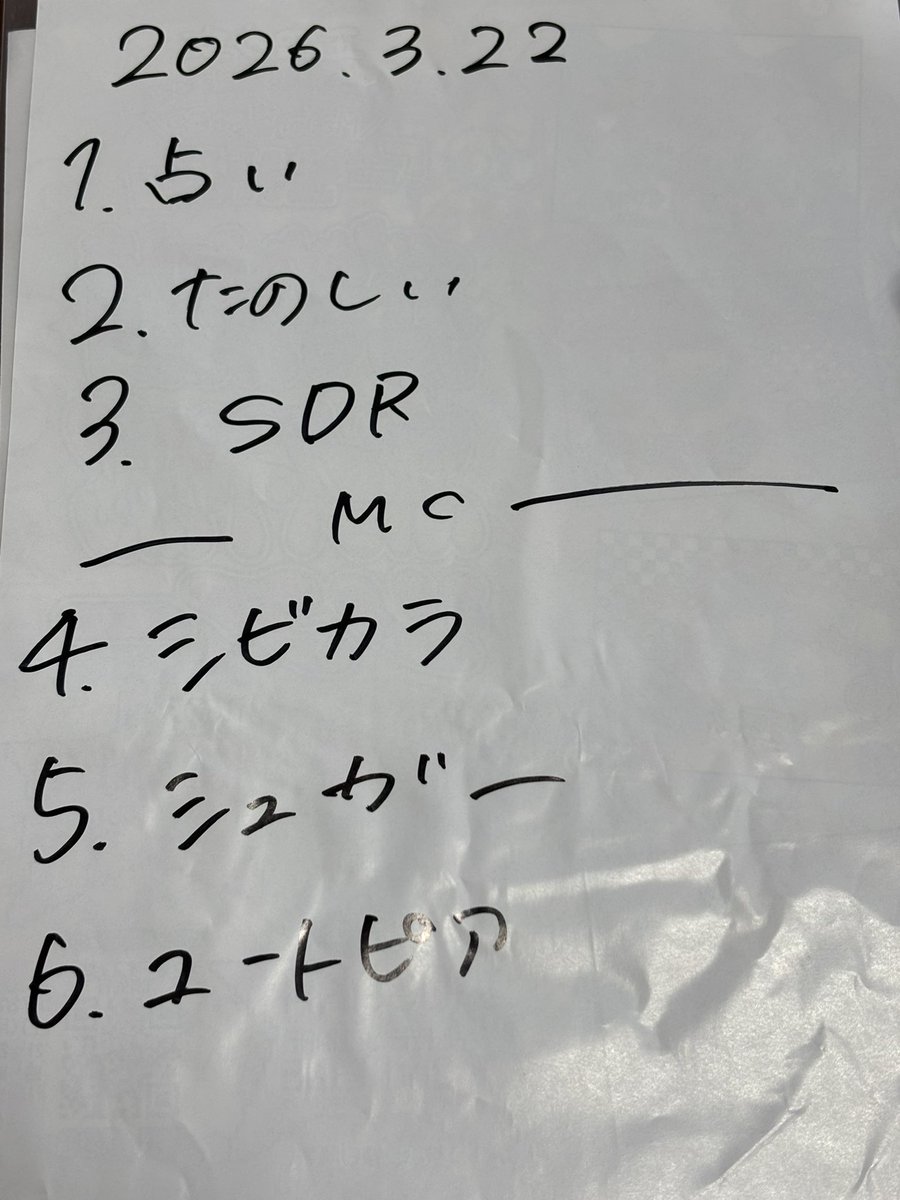 2026.3.22
1. 占い
2. たのしい
3. SDR
MC
4. シビカラ
5. シュガー
6. ユートピア